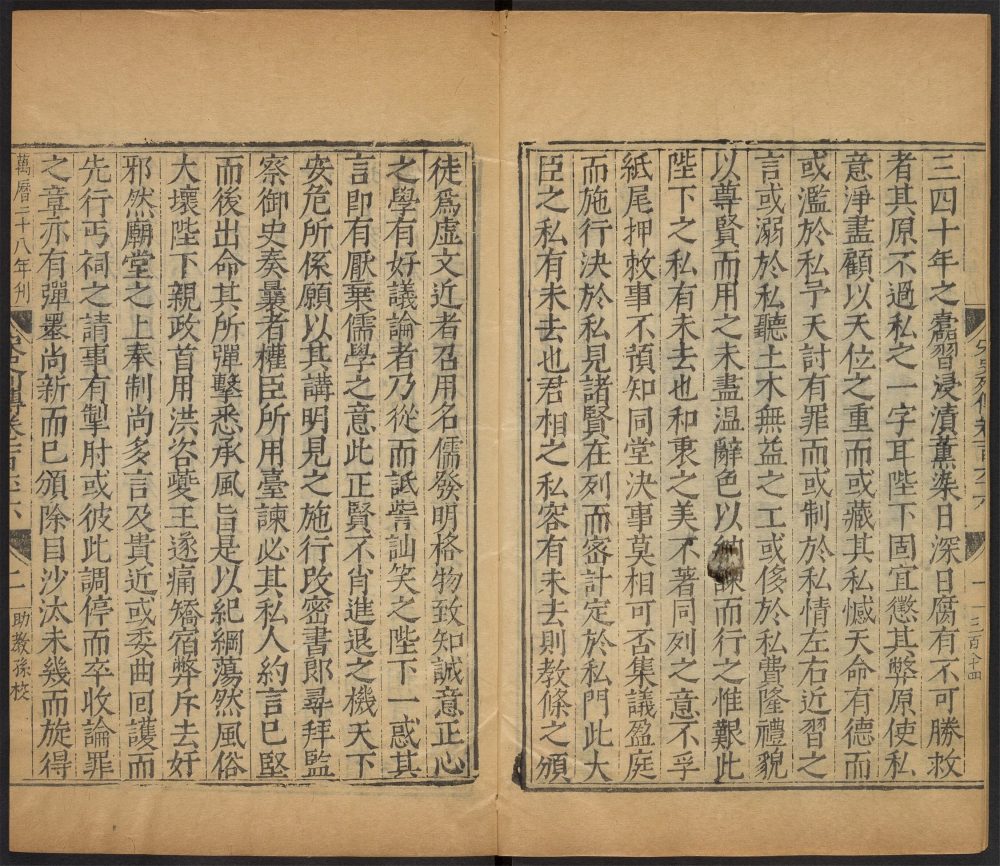 三四十年之蠹習浸漬薰染日深日腐有不可勝救
者其原不過私之一字耳陛下固宜懲其弊原使私
意淨盡顧以天位之重而或藏其私憾天命有德而
或濫於私予天討有罪而或制於私情左右近習之
言或溺於私聽土木無益之工或侈於私費隆禮貌
以尊賢而用之未盡溫辭色以納諫而行之惟艱此
陛下之私有未去也和衷之美不著同列之意不孚
紙尾押敕事不預知同堂決事莫相可否集議盈庭
而施行決於私見諸賢在列而密計定於私門此大
臣之私有未去也君相之私容有未去則教條之頒
徒爲虛文近者召用名儒發明格物致知誠意正心
之學有好議論者乃從而詆訾訕笑之陛下一惑其
言即有厭棄儒學之意此正賢不肖進退之機天下
安危所係願以其講明見之施行改密書郎尋拜監
察御史奏曩者權臣所用臺諫必其私人約言已堅
而後出命其所彈擊悉承風旨是以紀綱蕩然風俗
大壞陛下親政首用洪咨夔王遂痛矯宿弊斥去奸
邪然廟堂之上奉制尚多言及貴近或委曲回護而
先行丐祠之請事有掣肘或彼此調停而卒收論罪
之章亦有彈墨尚新而已頒除目沙汰未幾而旋得
萬曆二十八年刊
二
助教孫校